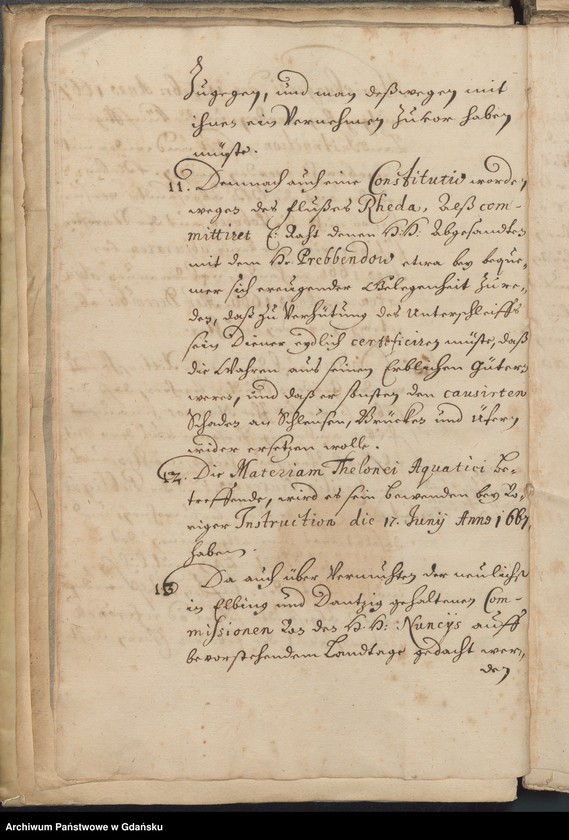 Zugegen, und man deßwegen mit
ihnen ein Vernehmen zuvor haben
müste.
11. Demnach auch eine Constitutio worden
wegen des Flußes Rheda, Alß com-
mittiret E: Raht denen HH: Abgesandten
mit dem Hr Prebbendow etwa bey beque-
mer sich ereugender Gelegenheit zu re-
den, daß zu Verhütung des Unterschleiffs
sein Diener eydlich certificiren müste, daß
die Wahren aus seinen Erblichen Gütern
weren, und daß er sonsten den causirten
Schaden an Schleusen, Brücken und Üfern
wider ersetzen wolle.
12. Die Materiam Thelonei Aquatici Be-
treffende, wird es sein bewenden bey vo-
riger Instruction die 17. Junij Anno 1667
haben.
13 Da auch über Vermuhten der neulichst
in Elbing und Dantzig gehaltenen Com-
missionen von den HH: Nuncijs auff
bevorstehendem Landtage gedacht wer-
den
Archiwum Państwowe w Gdańsku